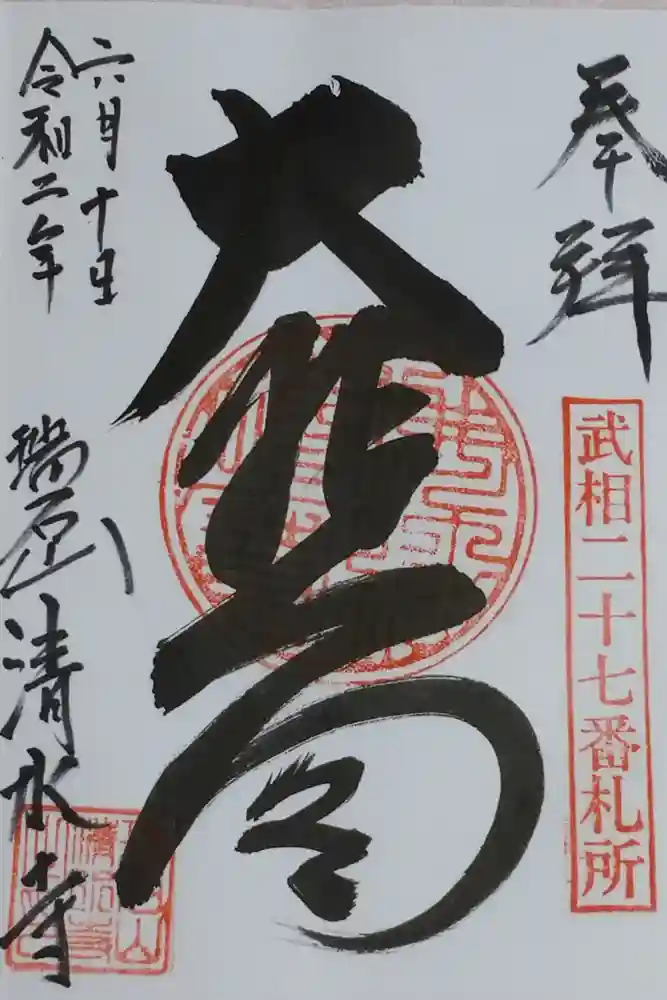 奉拝
武相二十七番札所
大悲閣
六月十日
令和二年
清水寺